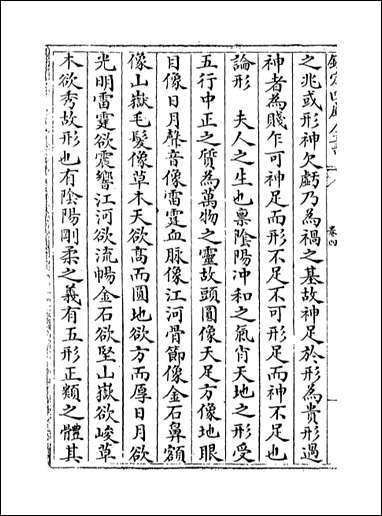 欽定四庫全書
卷四
之兆或形神欠虧乃為禍之基故神足於形為貴形過
神者為賤乍可神足而形不足不可形足而神不足也
論形　夫人之生也稟陰陽冲和之氣肖天地之形受
五行中正之質為萬物之靈故頭圓像天足方像地眼
目像日月聲音像雷霆血脉像江河骨節像金石鼻額
像山嶽毛髮像草木天欲髙而圓地欲方而厚日月欲
光明雷霆欲震響江河欲流暢金石欲堅山嶽欲峻草
木欲秀故形也有陰陽剛柔之義有五形正類之體其